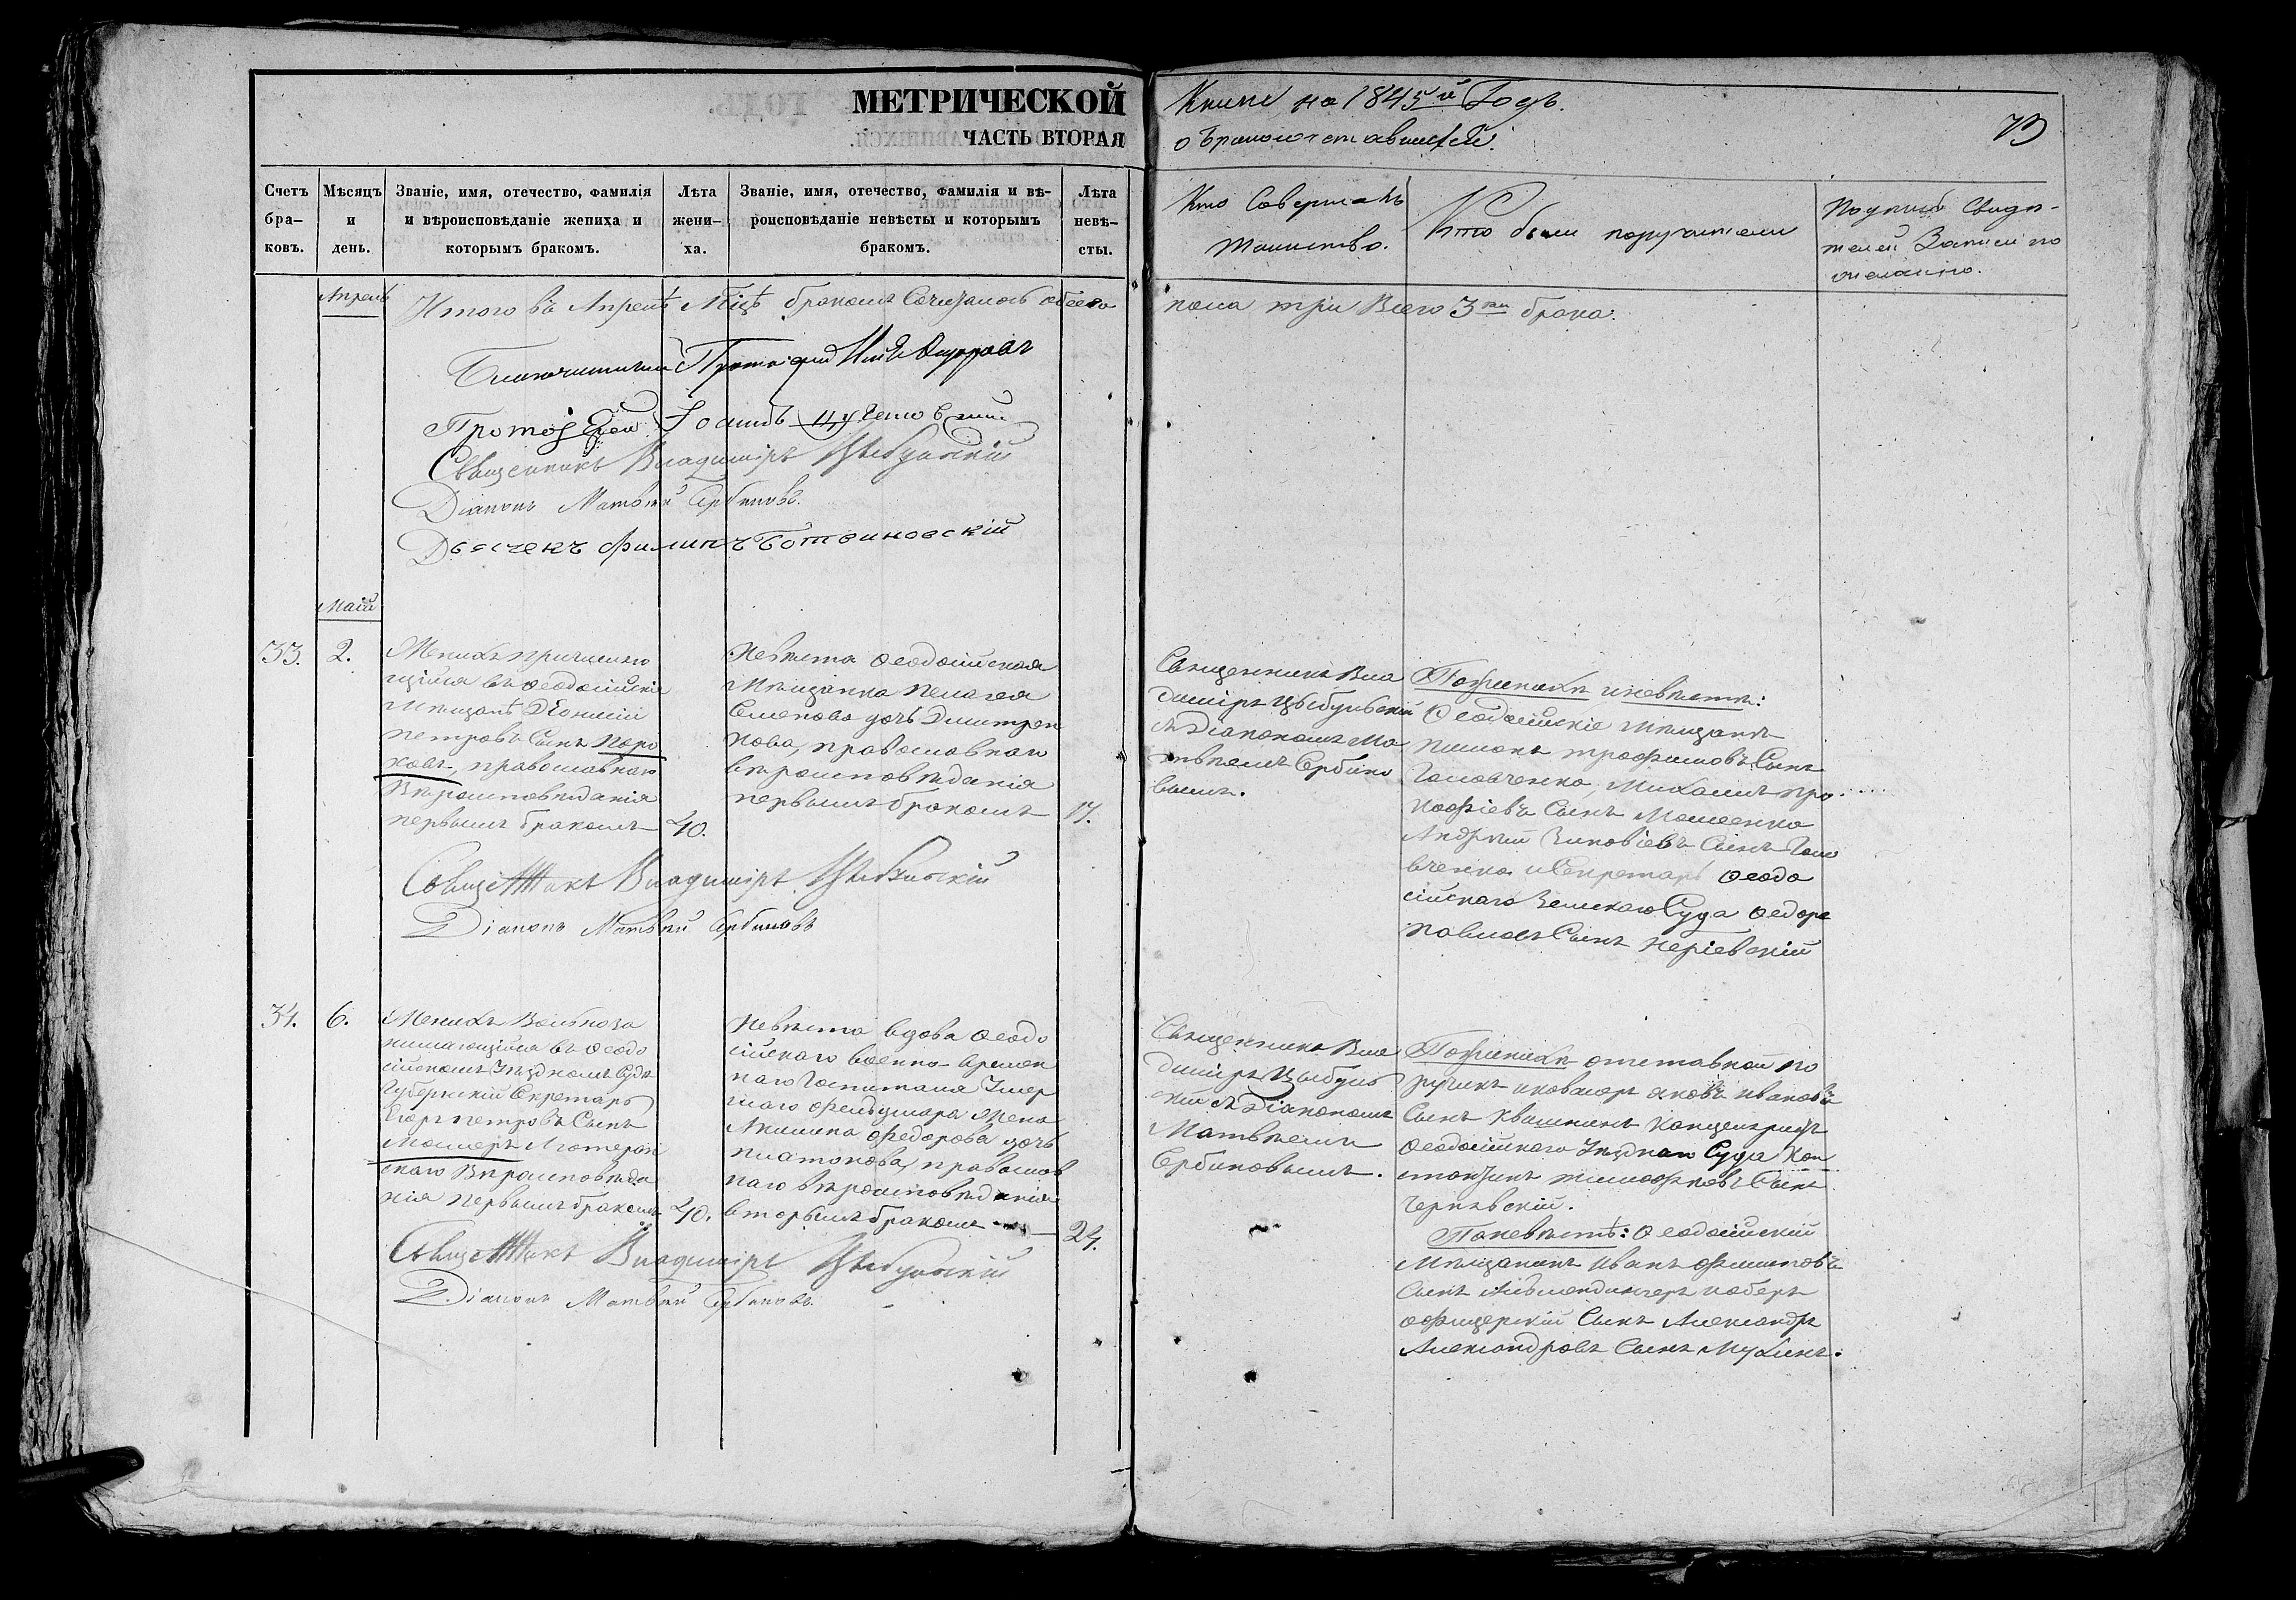 МЕТРИЧЕСКОЙ
ЧАСТЬ ВТОРАЯ
Книги на 1845й Годъ.
о бракосочетавшихся.
73
Счетъ бра-ковъ.
Мѣсяцъ и день.
Званіе, имя, отечество, фамилія и вѣроисповѣданіе жениха и которымъ бракомъ.
Лѣта жени-ха.
Званіе, имя, отечество, фамилія и вѣ-роисповѣданіе невѣсты и которымъ бракомъ.
Лѣта невѣ-сты.
Кто Совершалъ
Таинство.
Кто были поручители
Подпись Свидѣ-
телей Записи по
желанію.
Апрель
Итого въ Апрелѣ Мцѣ бракомъ Сочеталось обоего
пола три Всего 3ри брака.
Благочинный Протоіерей
Протоіерей Іоаннъ
Священникъ Владимиръ Цыбульскій
Діаконъ Матвѣй Сербиновъ.
Дьячекъ Филипъ Ботвиновскій
Маій
33.
2.
Женихъ причисляю
щійся въ Феодосійскіе
Мѣщане Діонисій
Петровъ Сынъ Поро
ховъ, православнаго
Вѣроисповѣданія
первымъ бракомъ
40.
Невѣста Феодосійская
Мѣщанка Пелагея
Семенова дочь Дмитрен
кова, православнаго
вѣроисповѣданія
первымъ бракомъ
17.
Священникъ Вла
димиръ Цыбульскій
съ Діакономъ Ма
твѣемъ Сербино
вымъ.
По женихѣ и невѣстѣ:
Феодосійскіе мѣщане
Пименъ Трофимовъ Сынъ
Головченко, Михаилъ Про
кофіевъ Сынъ Мошенко
Андрей Зиновіевъ Сынъ Голо
вченко и Секретарь Феодо
сійскаго Земскаго Суда Федоръ
Павловъ Сынъ Періевскій
Священникъ Владимиръ Цыбульскій
Діаконъ Матвѣй Сербиновъ
34.
6.
Женихъ Вольноза
нимающійся въ Феодо
сійскомъ Уѣздномъ Судѣ
Губернскій Секретарь
Егоръ Петровъ Сынъ
Мошеръ Лютеран
скаго Вѣроисповѣда
нія первымъ бракомъ
40.
Невѣста вдова Феодо
сійскаго военно-времен
наго Госпиталя Умер
шаго фельдшера жена
Акилина Федорова дочь
Платонова, православ
наго вѣроисповѣданія
вторымъ бракомъ
24.
Священникъ Вла
димиръ Цыбуль
скій съ Діакономъ
Матвѣемъ
Сербиновымъ.
По женихѣ отставной по
ручикъ и кавалеръ Яковъ Ивановъ
Сынъ Квашнинъ Канцеляристъ
Феодосійскаго Уѣзднаго Суда Кон
стантинъ Тимофѣевъ Сынъ
Чернявскій.
По невѣстѣ: Феодосійскій
Мѣщанинъ Иванъ Филиповъ
Сынъ и оберъ
офицерскій Сынъ Александръ
Александровъ Сынъ Мухинъ.
Священникъ Владимиръ Цыбульскій
Діаконъ Матвѣй Сербиновъ.